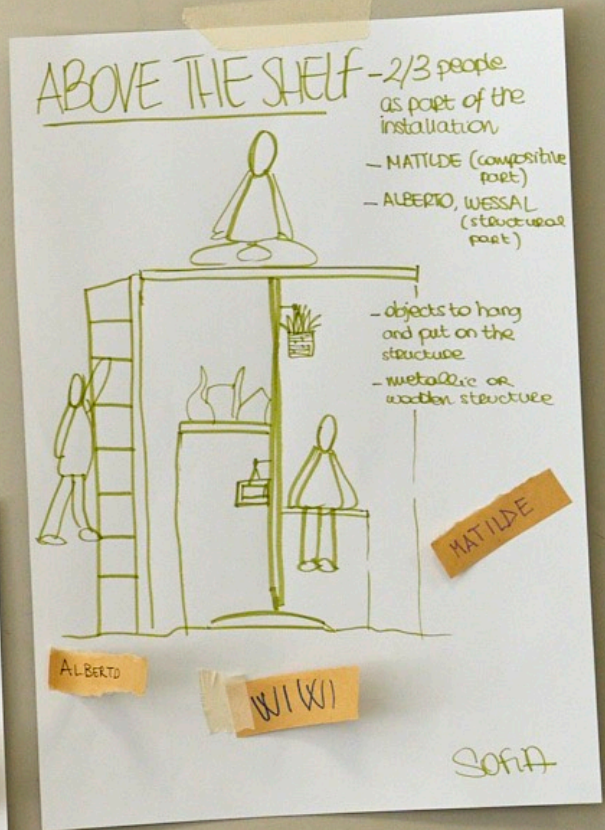 ABOVE THE SHELF
- 2/3 people
as part of the
installation
- MATILDE (compositive
part)
- ALBERTO, WESSAL
(structural
part)
- objects to hang
and put on the
structure
- metallic or
wooden structure
MATILDE
ALBERTO
WIWI
SOFIA